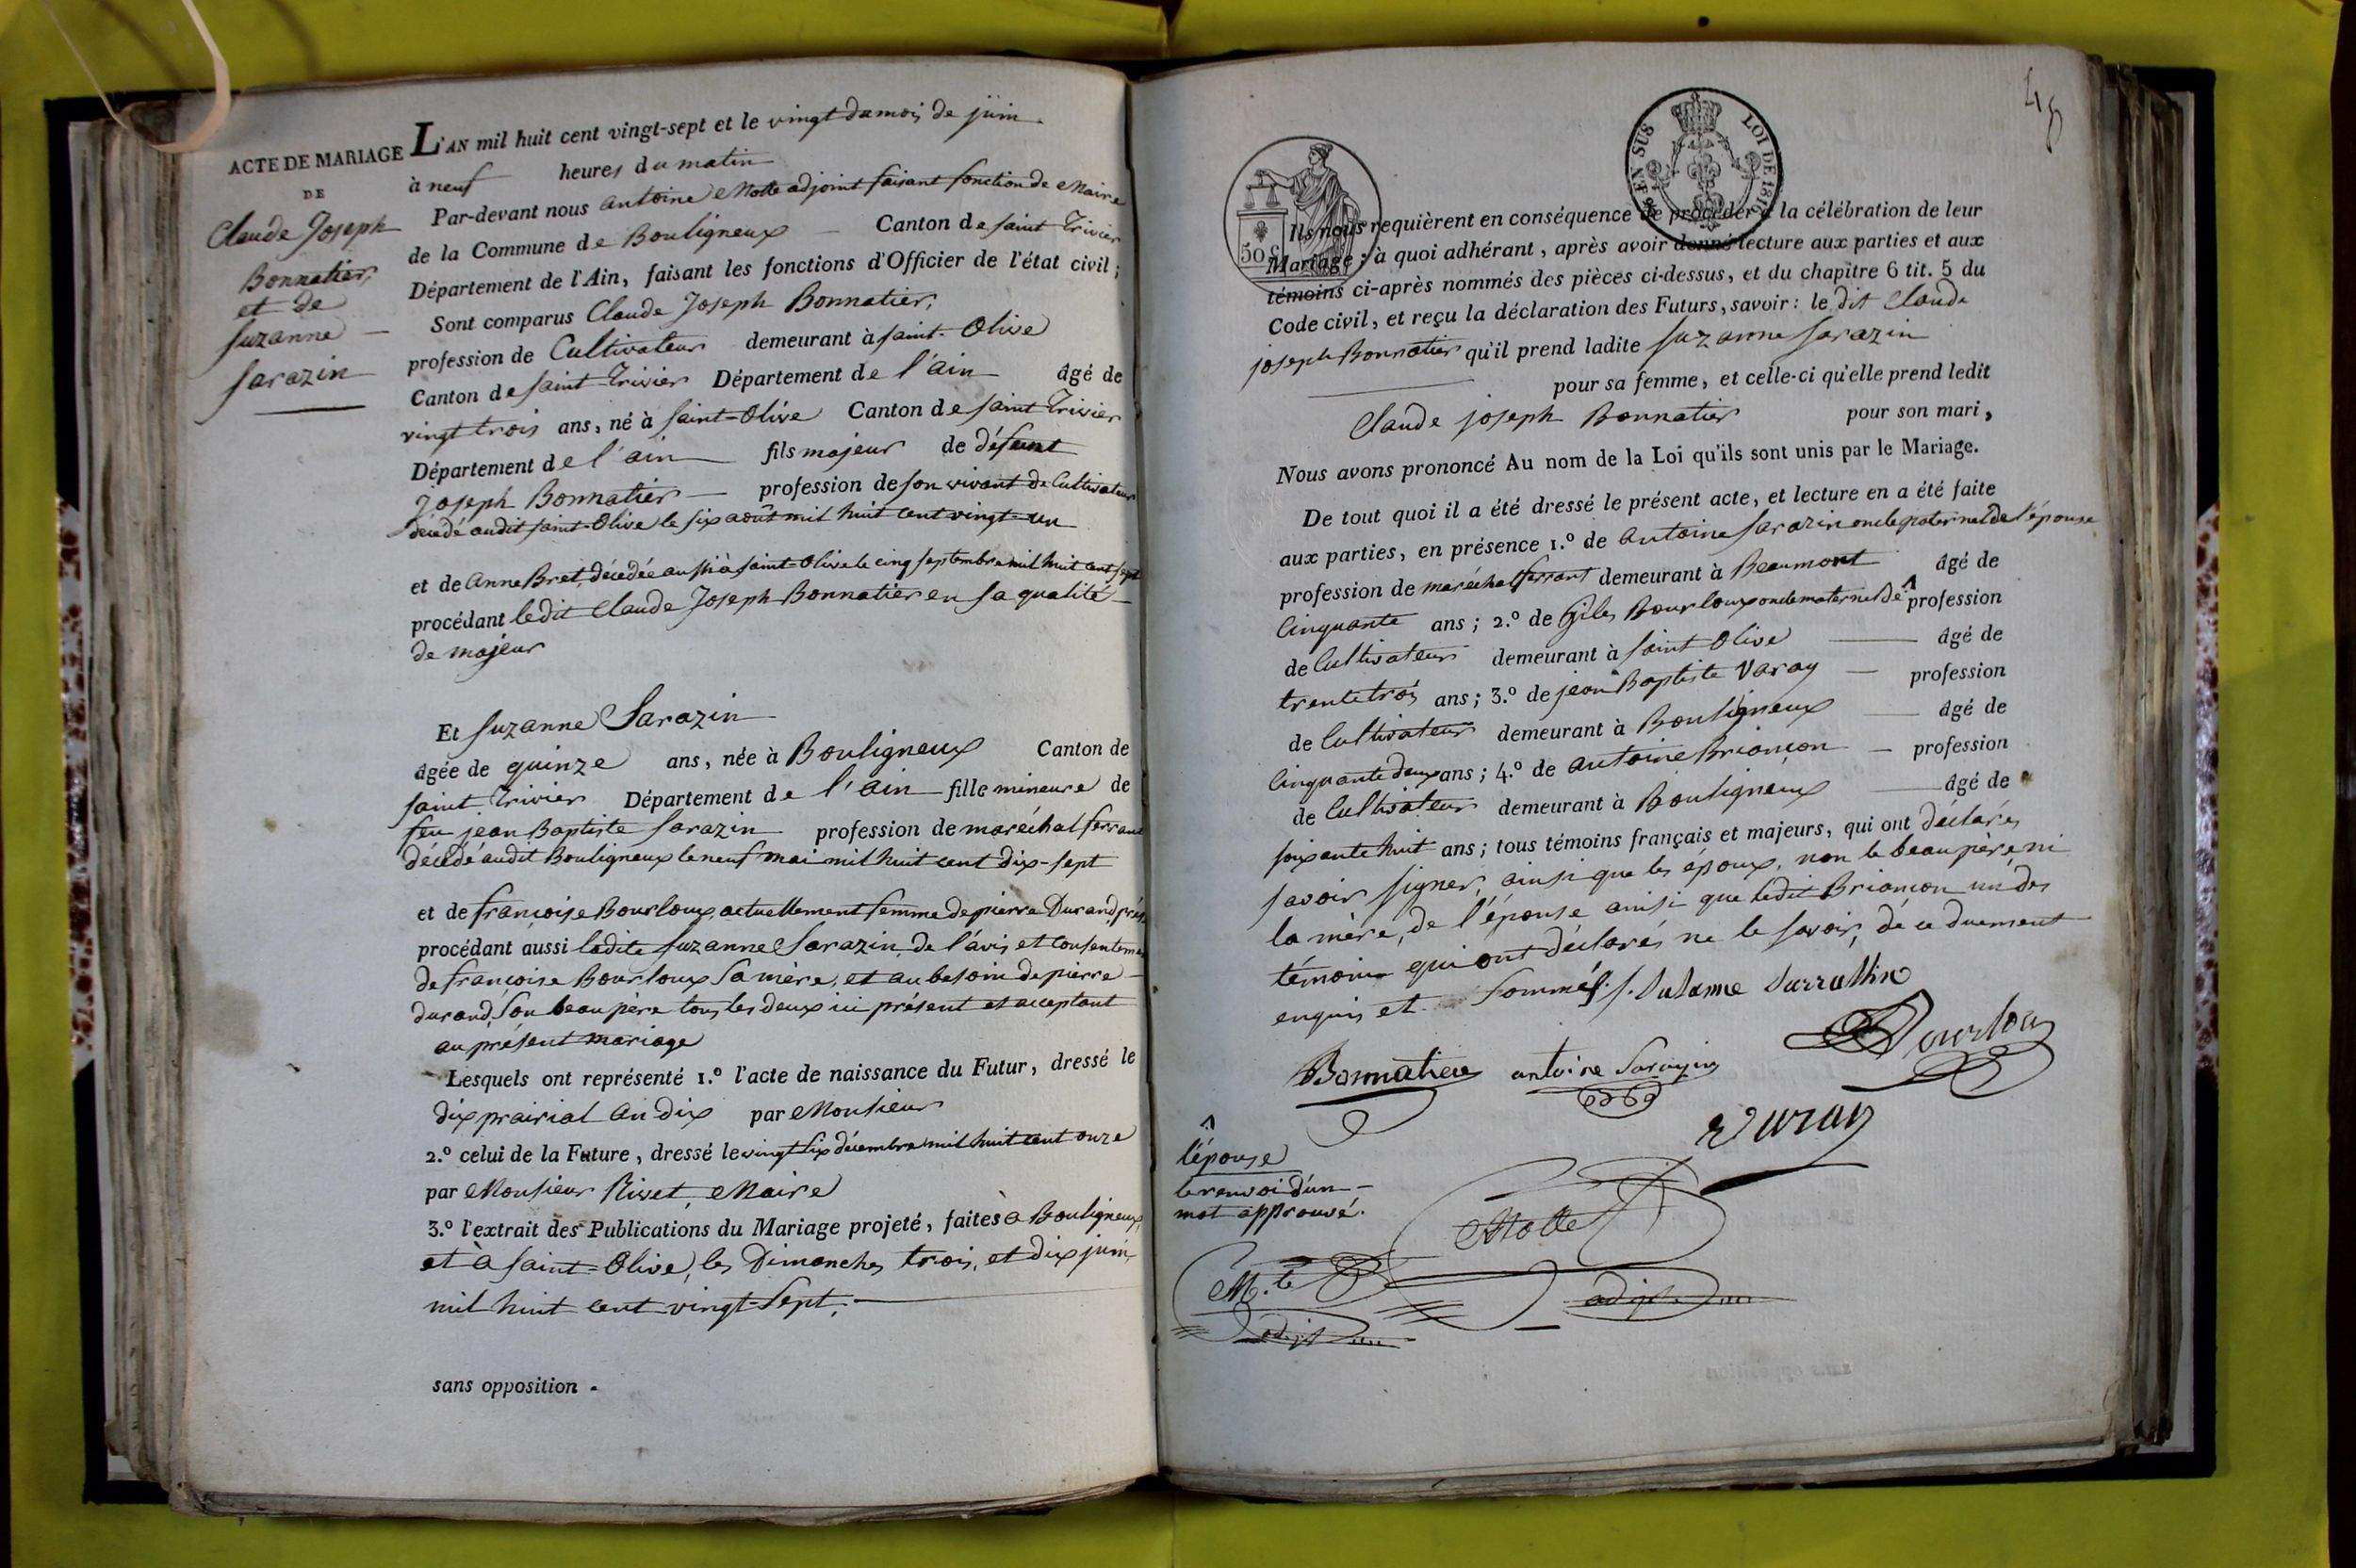 ACTE DE MARIAGE
DE
Claude Joseph
Bonnatier,
et de
Suzanne
Sarazin
L'AN mil huit cent vingt-sept et le vingt du mois de juin.
à neuf heures du matin
Par-devant nous antoine Motte adjoint faisant fonction de Maire
de la Commune de Bouligneux Canton de saint Trivier
Département de l'Ain, faisant les fonctions d'Officier de l'état civil;
Sont comparus Claude Joseph Bonnatier,
profession de Cultivateur demeurant à saint-Olive
Canton de saint-Trivier Département de l'ain âgé de
vingt trois ans, né à saint-Olive Canton de saint Trivier
Département de l'ain fils majeur de défunt
Joseph Bonnatier profession de son vivant de Cultivateur
décédé audit saint-Olive le six août mil huit cent vingt-un
et de anne Bret, décédée aussi à saint-Olive le cinq septembre mil huit cent sept
procédant ledit Claude Joseph Bonnatier en sa qualité
de majeur
Et Suzanne Sarazin
âgée de quinze ans, née à Bouligneux Canton de
saint Trivier Département de l'ain fille mineure de
feu jean Baptiste Sarazin profession de maréchal ferrant
décédé audit Bouligneux le neuf mai mil huit cent dix-sept
et de françoise Bourloux, actuellement femme de pierre Durand
procédant aussi ladite Suzanne Sarazin, de l'avis et consentement
de françoise Bourloux sa mère, et au besoin de pierre
durand, son beau père tous les deux ici présent et acceptant
au présent mariage
Lesquels ont représenté 1.º l'acte de naissance du Futur, dressé le
dix prairial an dix par Monsieur
2.º celui de la Future, dressé le vingt six décembre mil huit cent onze
par Monsieur Rivet, Maire
3.º l'extrait des Publications du Mariage projeté, faites à Bouligneux,
et à saint-Olive, les Dimanches trois, et dix juin
mil huit cent vingt-sept;
sans opposition.
48
EN SUS LOI DE 1816
50 C
Ils nous requièrent en conséquence de procéder à la célébration de leur
Mariage; à quoi adhérant, après avoir donné lecture aux parties et aux
témoins ci-après nommés des pièces ci-dessus, et du chapitre 6 tit. 5 du
Code civil, et reçu la déclaration des Futurs, savoir: le dit Claude
joseph Bonnatier qu'il prend ladite Suzanne Sarazin
pour sa femme, et celle-ci qu'elle prend ledit
Claude joseph Bonnatier pour son mari,
Nous avons prononcé Au nom de la Loi qu'ils sont unis par le Mariage.
De tout quoi il a été dressé le présent acte, et lecture en a été faite
aux parties, en présence 1.º de antoine Sarazin oncle paternel de l'épouse
profession de maréchal ferrant demeurant à Beaumont âgé de
Cinquante ans; 2.º de Giles Bourloux oncle maternel de ^ profession
de Cultivateur demeurant à saint Olive âgé de
trente trois ans; 3.º de jean Baptiste Varay profession
de Cultivateur demeurant à Bouligneux âgé de
Cinquante deux ans; 4.º de antoine Briançon profession
de Cultivateur demeurant à Bouligneux âgé de
soixante huit ans; tous témoins français et majeurs, qui ont déclarés
savoir signer, ainsi que les époux, non le beau père ni
la mère, de l'épouse ainsi que ledit Briançon un des
témoins qui ont déclarés ne le savoir, de ce duement
enquis et sommés. /. Susanne Sarrathin
Bonnatier antoine Sarazin Bourlou
Varay
^
l'épouse
le renvoi d'un
mot approuvé.
Motte
adjt
M.te
adjt